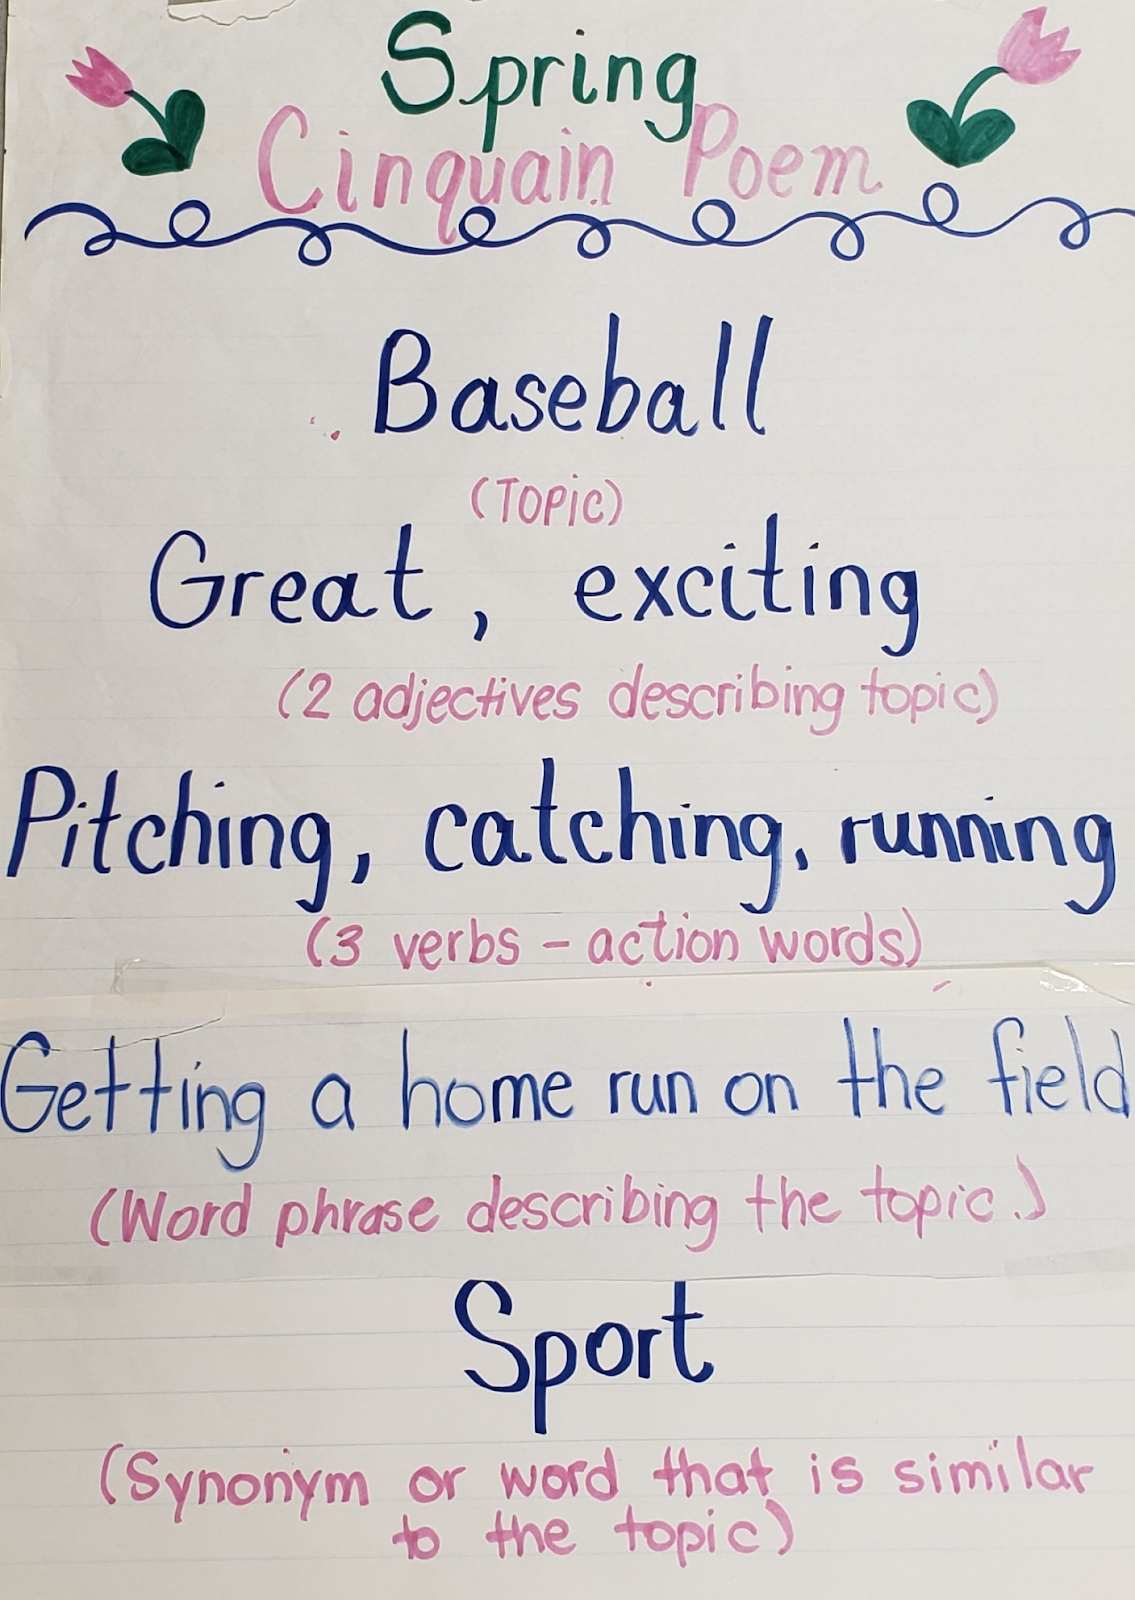 Spring
Cinquain Poem
Baseball
(Topic)
Great, exciting
(2 adjectives describing topic)
Pitching, catching, running
(3 verbs - action words)
Getting a home run on the field
(Word phrase describing the topic.)
Sport
(Synonym or word that is similar
to the topic)